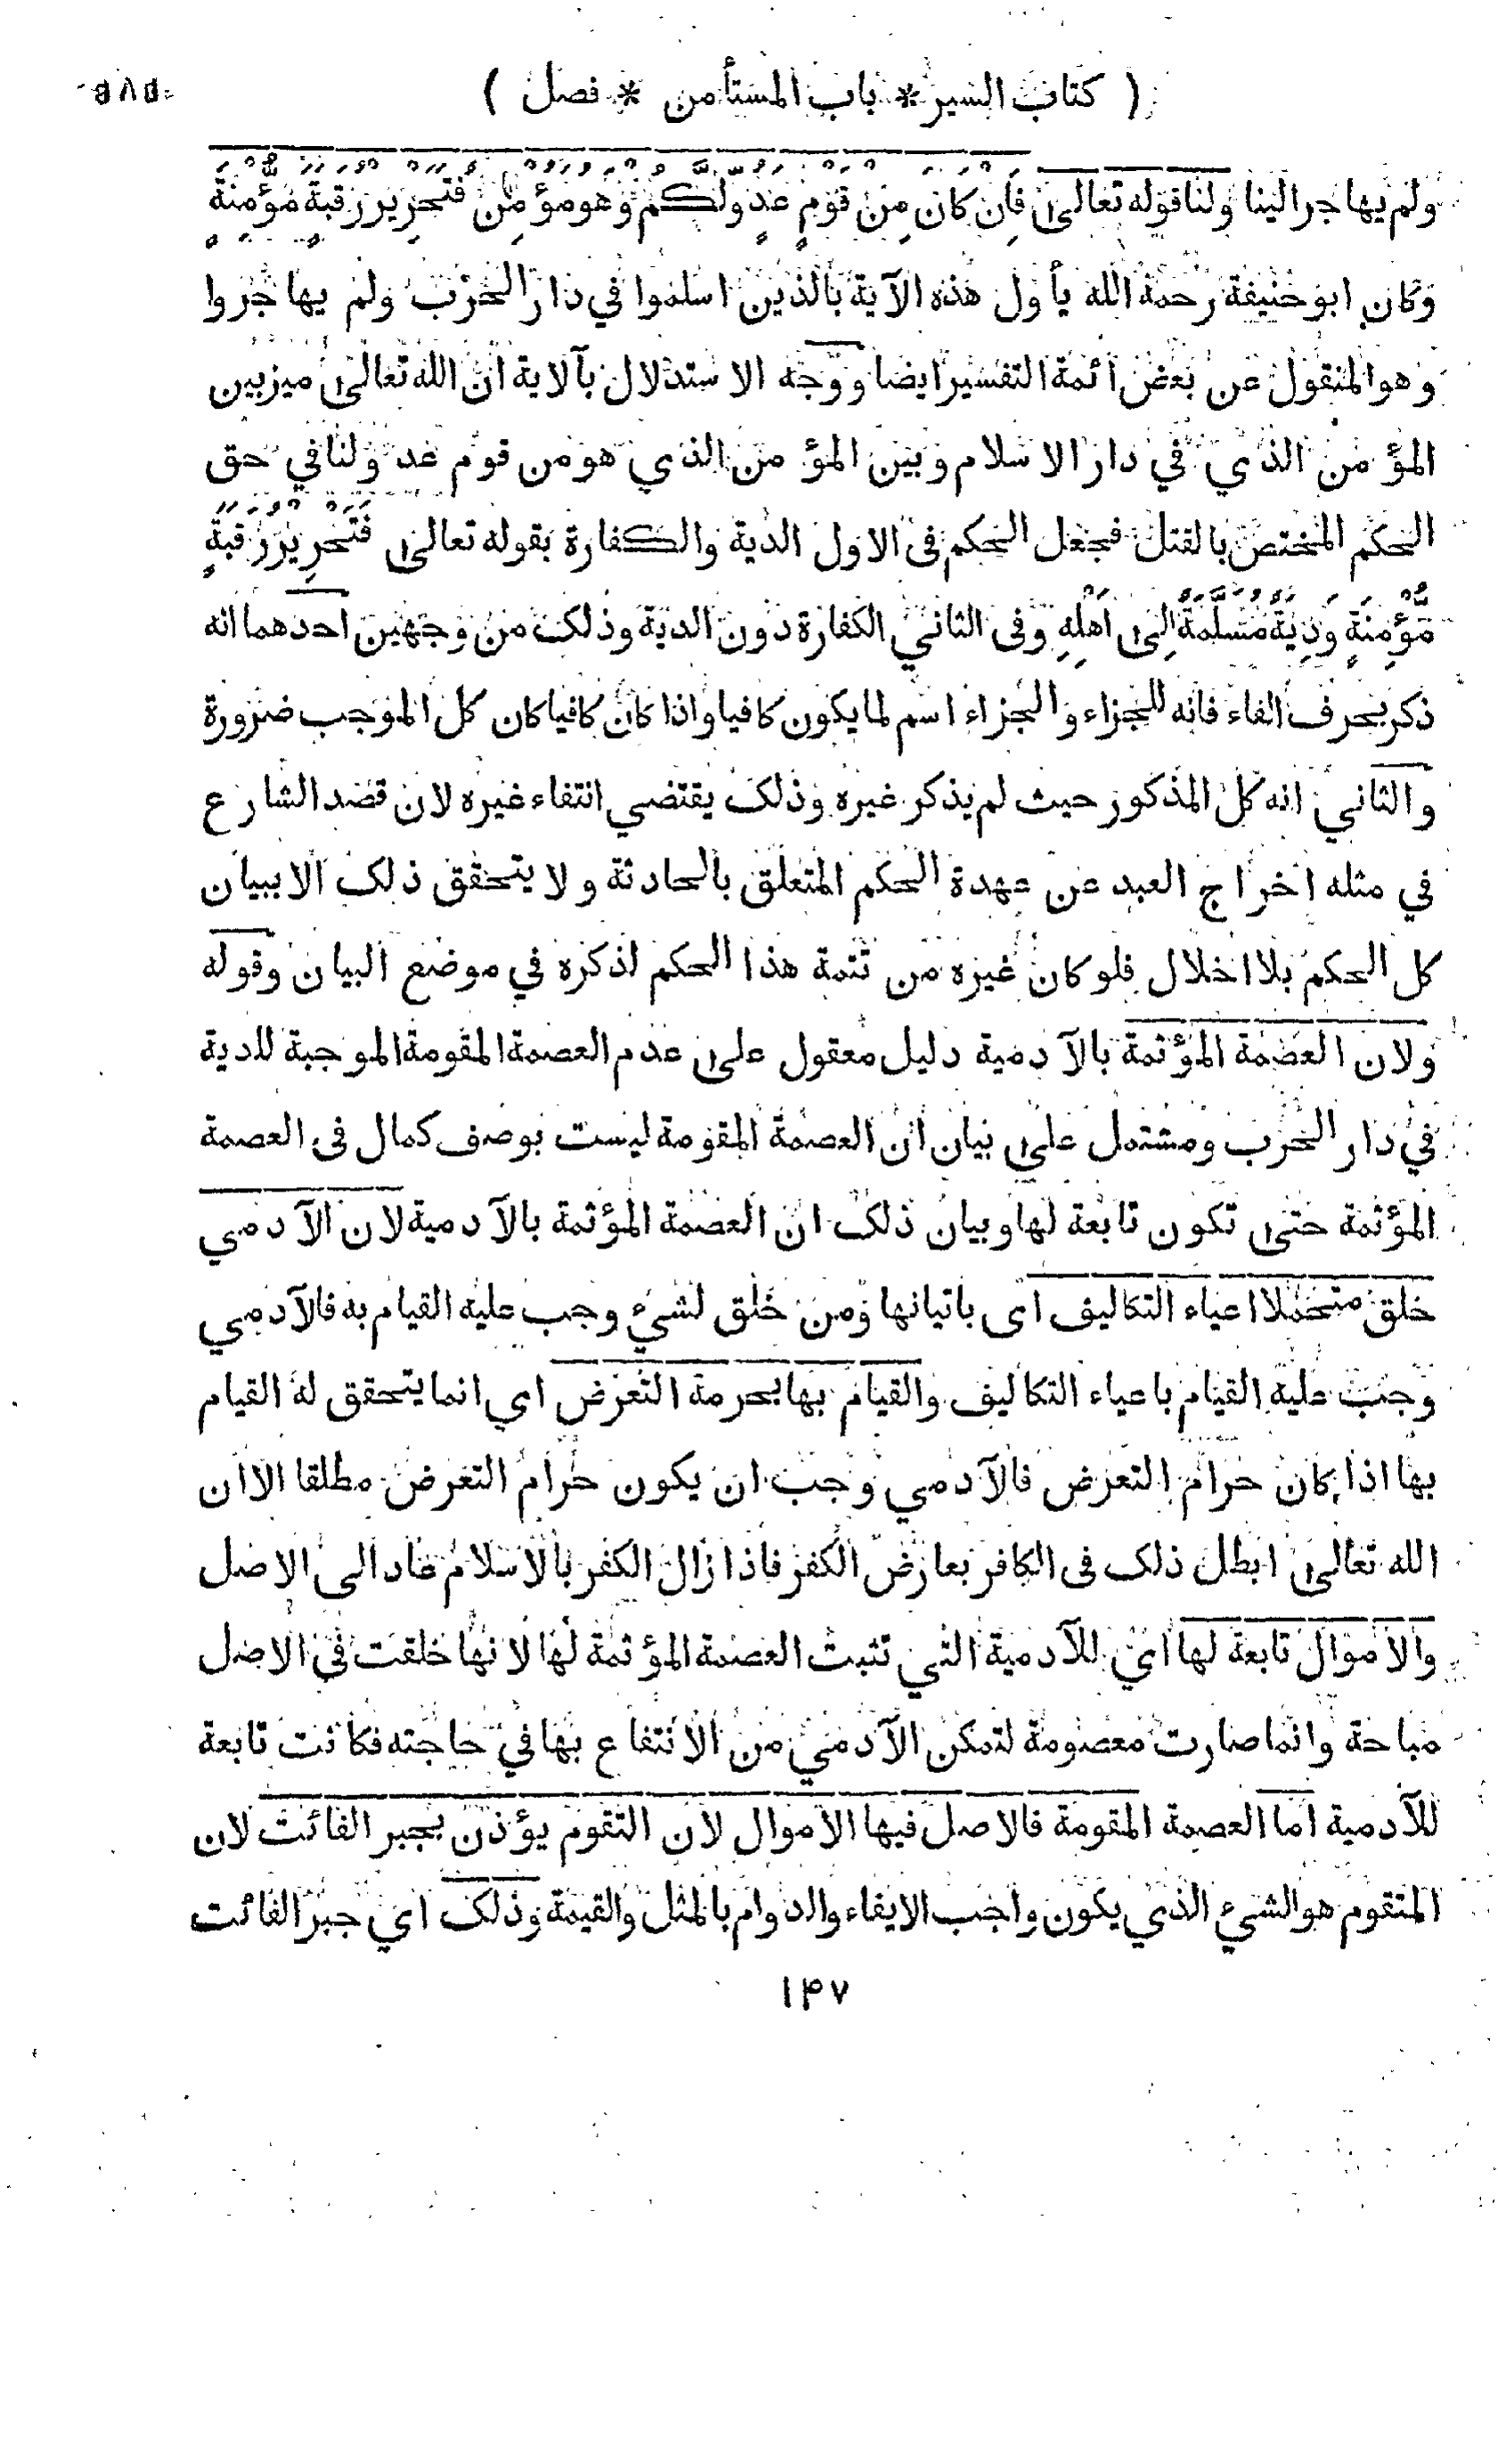 ( كتاب السير * باب المستأمن * فصل )
٥٨٥
ولم يهاجر الينا ولنا قوله تعالى فَاِنْ كَانَ مِنْ قَوْمٍ عَدُوٍّ لَّكُمْ وَهُوَ مُؤْمِنٌ فَتَحْرِيْرُ رَقَبَةٍ مُّؤْمِنَةٍ
وكان ابو حنيفة رحمة الله يأول هذه الآية بالذين اسلموا في دار الحرب ولم يهاجروا
وهو المنقول عن بعض ائمة التفسير ايضا ووجه الاستدلال بآلاية ان الله تعالى ميزبين
المؤمن الذي في دار الاسلام وبين المؤمن الذي هومن قوم عدولنا في حق
الحكم المختص بالقتل فجعل الحكم فى الاول الدية والكفارة بقوله تعالى فَتَحْرِيْرُ رَقَبَةٍ
مُّؤْمِنَةٍ وَدِيَةٌ مُّسَلَّمَةٌ اِلَى اَهْلِهِ وفى الثاني الكفارة دون الدية وذلك من وجهين احدهما انه
ذكر بحرف الفاء فانه للجزاء والجزاء اسم لما يكون كافيا واذا كان كافيا كان كل الموجب ضرورة
والثاني انه كل المذكور حيث لم يذكر غيره وذلك يقتضي انتفاء غيره لان قصد الشارع
في مثله اخراج العبد عن عهدة الحكم المتعلق بالحادثة ولا يتحقق ذلك الا ببيان
كل الحكم بلا اخلال فلو كان غيره من تتمة هذا الحكم لذكره في موضع البيان وقوله
ولان العصمة المؤثمة بالآدمية دليل معقول على عدم العصمة المقومة الموجبة للدية
في دار الحرب ومشتمل على بيان ان العصمة المقومة ليست بوصف كمال فى العصمة
المؤثمة حتى تكون تابعة لها وبيان ذلك ان العصمة المؤثمة بالآدمية لان الآدمي
خلق متحملا اعياء التكاليف اى باتيانها ومن خلق لشيء وجب عليه القيام به فالآدمي
وجب عليه القيام باعياء التكاليف والقيام بها بحرمة التعرض اي انما يتحقق له القيام
بها اذا كان حرام التعرض فالآدمي وجب ان يكون حرام التعرض مطلقا الا ان
الله تعالى ابطل ذلك فى الكافر بعارض الكفر فاذا زال الكفر بالاسلام عاد الى الاصل
والاموال تابعة لها اي للآدمية التي تثبت العصمة المؤثمة لها لانها خلقت في الاصل
مباحة وانما صارت معصومة لتمكن الآدمي من الانتفاع بها في حاجته فكانت تابعة
للآدمية اما العصمة المقومة فالاصل فيها الاموال لان التقوم يؤذن بجبر الفائت لان
المتقوم هو الشيء الذي يكون واجب الايفاء والدوام بالمثل والقيمة وذلك اي جبر الفائت
١٤٧